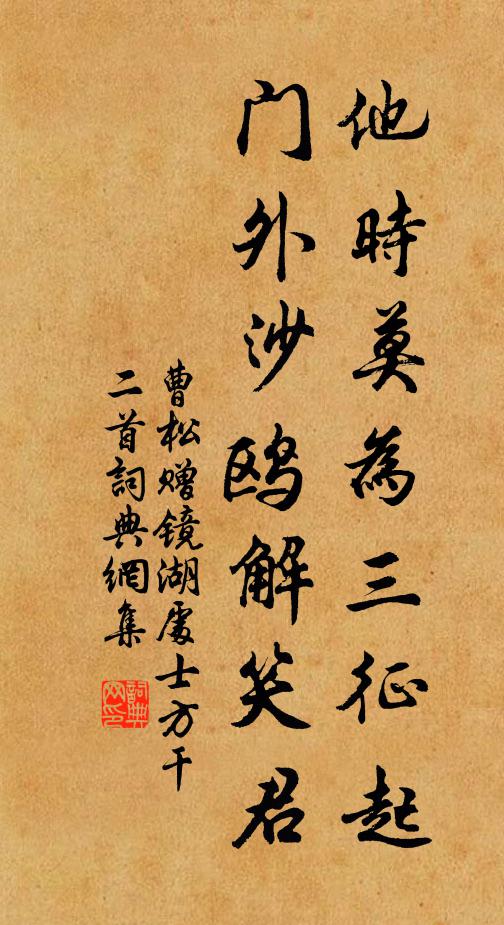 他時莫為三征起
门外沙鸥解笑君
曹松赠镜湖處士方干
二首詞典網集
詞典网印